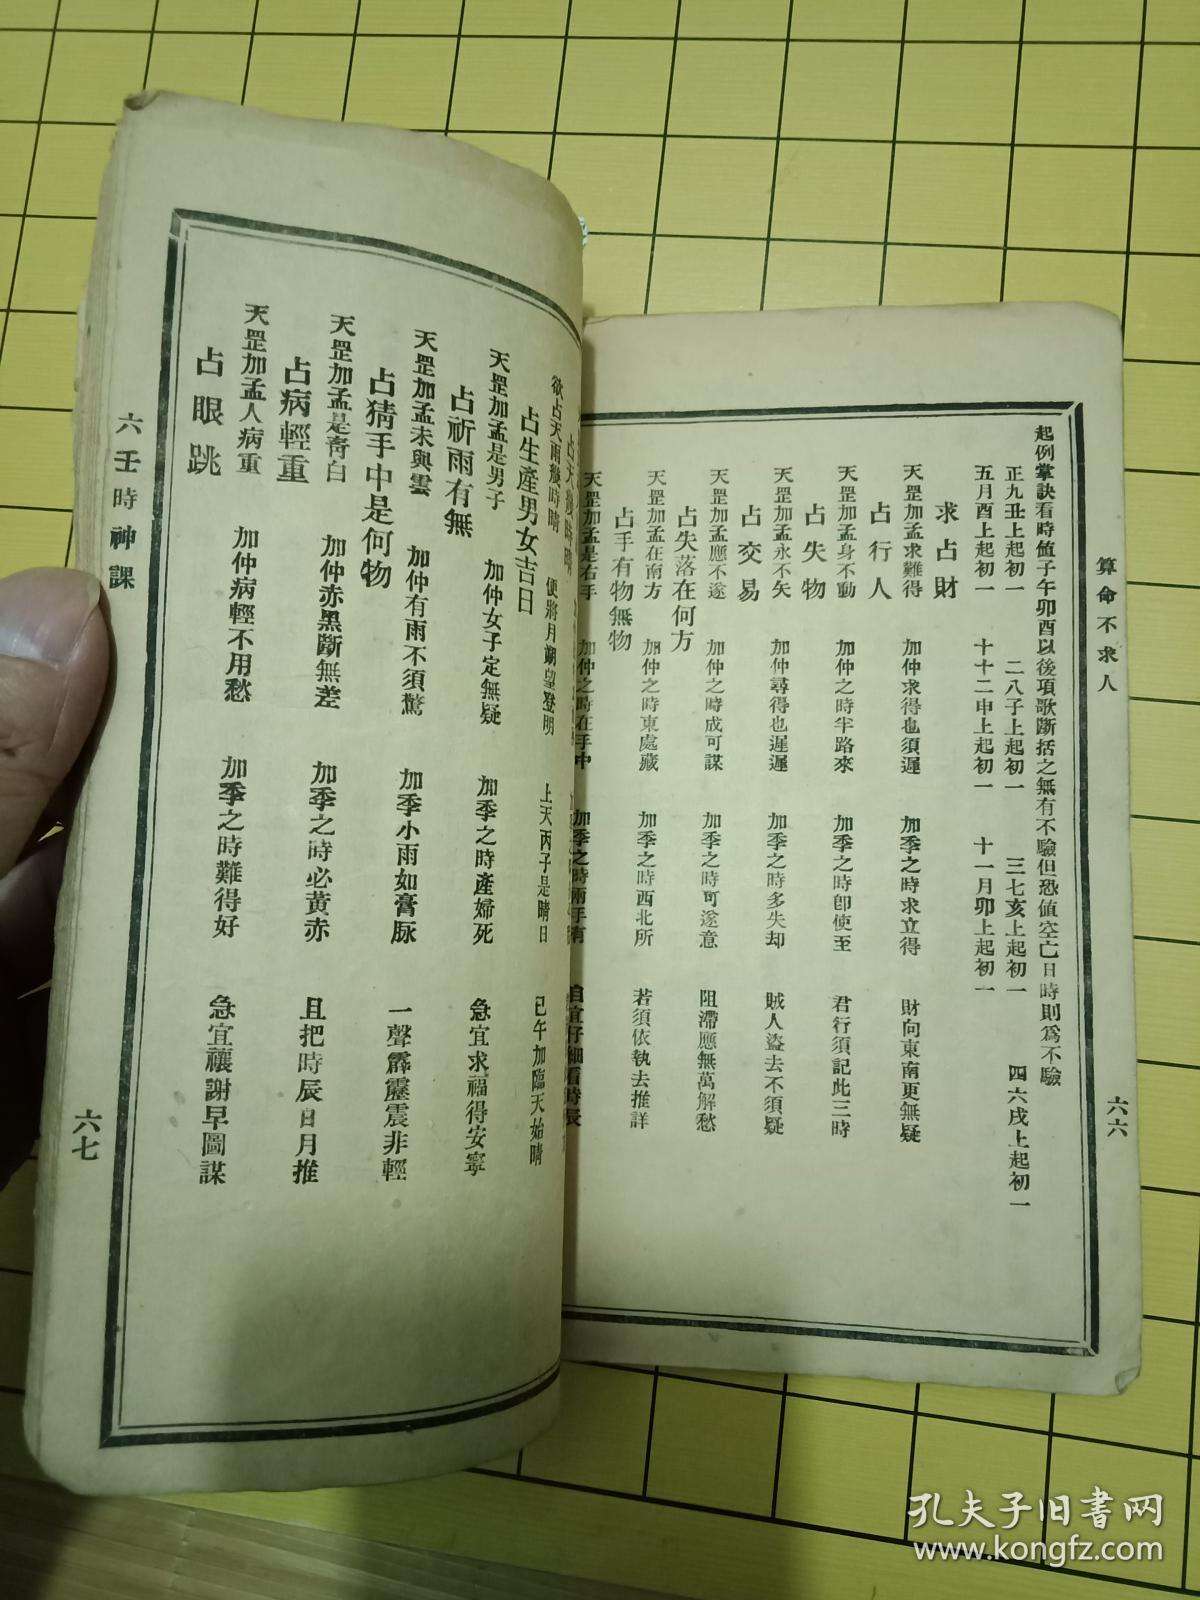 算命不求人
六六
起例掌訣看時值子午卯酉以後項歌斷括之無有不驗但恐值空亡日時則為不驗
正九丑上起初一 二八子上起初一 三七亥上起初一 四六戌上起初一
五月酉上起初一 十十二申上起初一 十一月卯上起初一
求占財
天罡加孟求難得 加仲求得也須遲 加季之時求立得 財向東南更無疑
占行人
天罡加孟身不動 加仲之時半路來 加季之時卽使至 君行須記此三時
占失物
天罡加孟永不矢 加仲尋得也遲遲 加季之時多失却 賊人盜去不須疑
占交易
天罡加孟應不遂 加仲之時成可謀 加季之時可遂意 阻滯應無萬解愁
占失落在何方
天罡加孟在南方 加仲之時東處藏 加季之時西北所 若須依執去推詳
占手有物無物
天罡加孟是右手 加仲之時在手中 加季之時兩手有 宜仔細看時辰
欲占天雨幾時晴 便將月朔望登明 上天丙子是晴日 已午加臨天始晴
占生產男女吉日
天罡加孟是男子 加仲女子定無疑 加季之時產婦死 急宜求福得安寧
占祈雨有無
天罡加孟未與雲 加仲有雨不須驚 加季小雨如膏脉 一聲霹靂震非輕
占猜手中是何物
天罡加孟是靑白 加仲赤黑斷無差 加季之時必黃赤 且把時辰日月推
占病輕重
天罡加孟人病重 加仲病輕不用愁 加季之時難得好 急宜禳謝早圖謀
占眼跳
六壬時神課
六七
孔夫子旧书网
www.kongfz.com